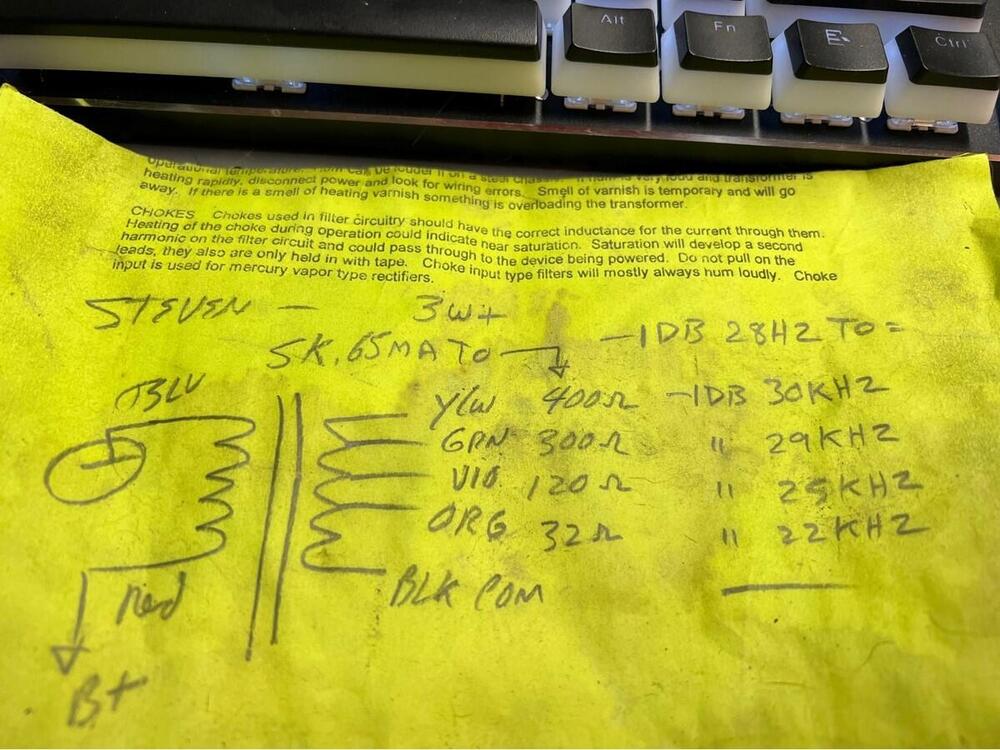 Alt Fn Ctrl
heating rapidly, disconnect power and look for wiring errors. Smell of varnish is temporary and will go
away. If there is a smell of heating varnish something is overloading the transformer.
CHOKES Chokes used in filter circuitry should have the correct inductance for the current through them.
Heating of the choke during operation could indicate near saturation. Saturation will develop a second
harmonic on the filter circuit and could pass through to the device being powered. Do not pull on the
leads, they also are only held in with tape. Choke input type filters will mostly always hum loudly. Choke
input is used for mercury vapor type rectifiers.
STEVEN — 3W+
5K, 65MA TO —1DB 28HZ TO =
BLU YLW 400Ω -1DB 30KHZ
GRN 300Ω " 29KHZ
VIO 120Ω " 25KHZ
ORG 32Ω " 22KHZ
BLK COM
Red
B+